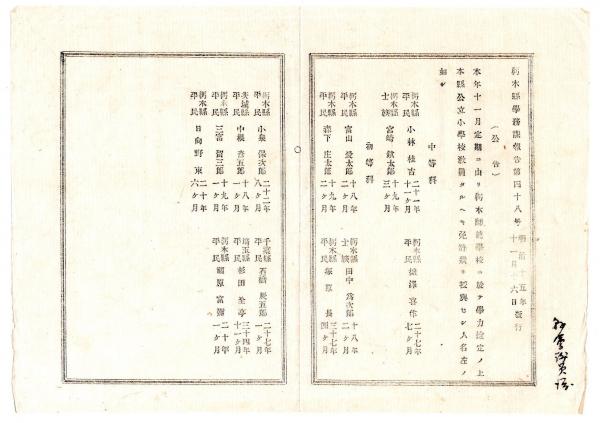 栃木縣學務課報告第四十八号 明治十五年十一月六日發行
(公告)
本年十一月定期ニ由リ栃木師範學校ニ於テ學力檢定ノ上
本縣公立小學校敎員タルヘキ免許狀ヲ授與セシ人名左ノ
如シ
中等科
栃木縣平民 小林桂吉 二十一年十一ヶ月
栃木縣平民 喜作 二十七年
栃木縣士族 宮崎太郎 十九年三ヶ月
初等科
栃木縣平民 富山愛太郎 十八年二ヶ月
栃木縣士族 田中爲次郎 十八年二ヶ月
栃木縣平民 森下庄太郎 十九年二ヶ月
栃木縣平民 塚原長 三十七年四ヶ月
栃木縣平民 小泉保次郎 二十二年八ヶ月
千葉縣平民 石橋長五郎 二十七年一ヶ月
茨城縣平民 中根彦五郎 十八年一ヶ月
埼玉縣平民 杉田奎亭 三十四年十一ヶ月
栃木縣平民 三富賀三郎 十九年一ヶ月
栃木縣平民 原富彌 二十年一ヶ月
栃木縣平民 日向野東 二十年六ヶ月